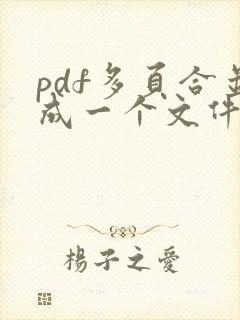 pdf多页合并
成一个文件
楊子之愛